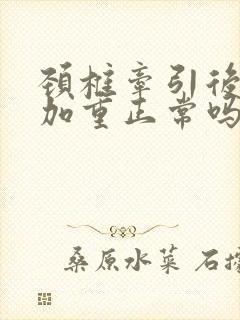 颈柱牵引後
加重正常吗
桑原水菜 石